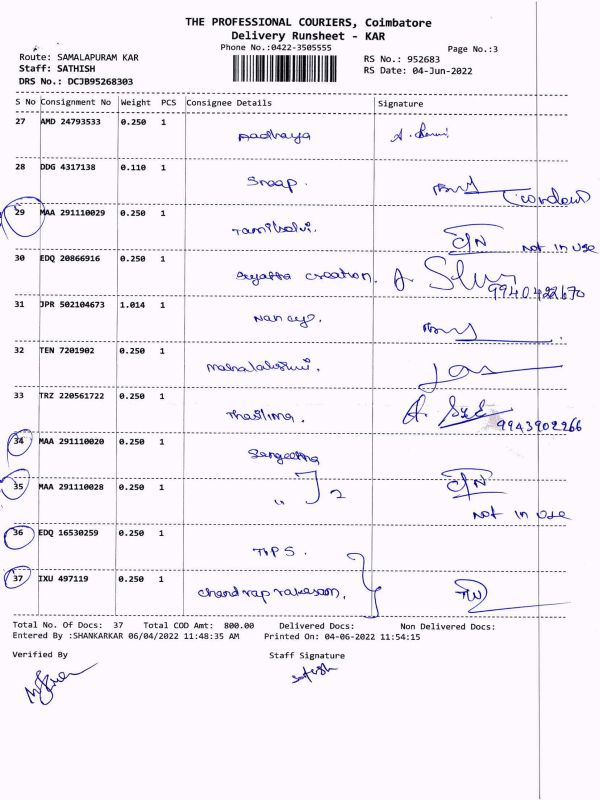 THE PROFESSIONAL COURIERS, Coimbatore
Delivery Runsheet - KAR
Phone No.:0422-3505555
Page No.:3
Route: SAMALAPURAM KAR
RS No.: 952683
Staff: SATHISH
RS Date: 04-Jun-2022
DRS No.: DCJB95268303
S No Consignment No Weight PCS Consignee Details Signature
27 AMD 24793533 0.250 1
Aadhaya
28 DDG 4317138 0.110 1
Snaap.
29 MAA 291110029 0.250 1
Tamilselvi. C/N Not in use
30 EDQ 20866916 0.250 1
creation. 9940422670
31 JPR 502104673 1.014 1
Nancy.
32 TEN 7201902 0.250 1
Mahalakshmi.
33 TRZ 220561722 0.250 1
Thaslima. 9943902266
34 MAA 291110020 0.250 1
Sangeetha
35 MAA 291110028 0.250 1
" ] 2 C/N
Not in use
36 EDQ 16530259 0.250 1
TIPS.
37 IXU 497119 0.250 1
Chandraprakasam.
Total No. Of Docs: 37 Total COD Amt: 800.00 Delivered Docs: Non Delivered Docs:
Entered By :SHANKARKAR 06/04/2022 11:48:35 AM Printed On: 04-06-2022 11:54:15
Verified By Staff Signature
Satish